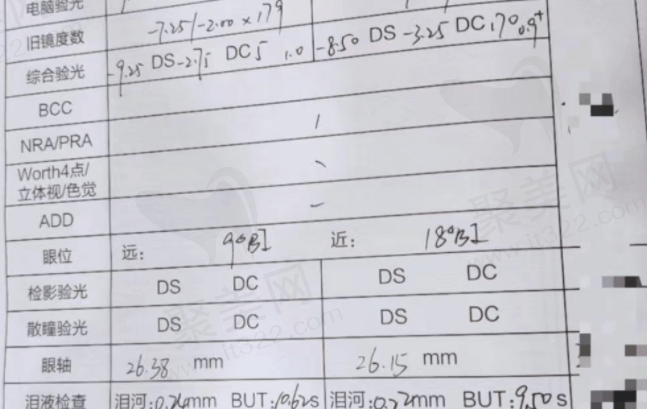 电脑验光
旧镜度数 -7.25/-2.00×179
综合验光 -9.25 DS -2.75 DC 5 1.0 -8.50 DS -3.25 DC 170 0.9+
BCC
NRA/PRA
Worth4点/
立体视/色觉
ADD
眼位 远: 9△BI 近: 18△BI
检影验光 DS DC DS DC
散瞳验光 DS DC DS DC
眼轴 26.38 mm 26.15 mm
泪液检查 泪河:0.24mm BUT:10.62s 泪河:0.22mm BUT:9.50s
聚美网
www.jt322.com